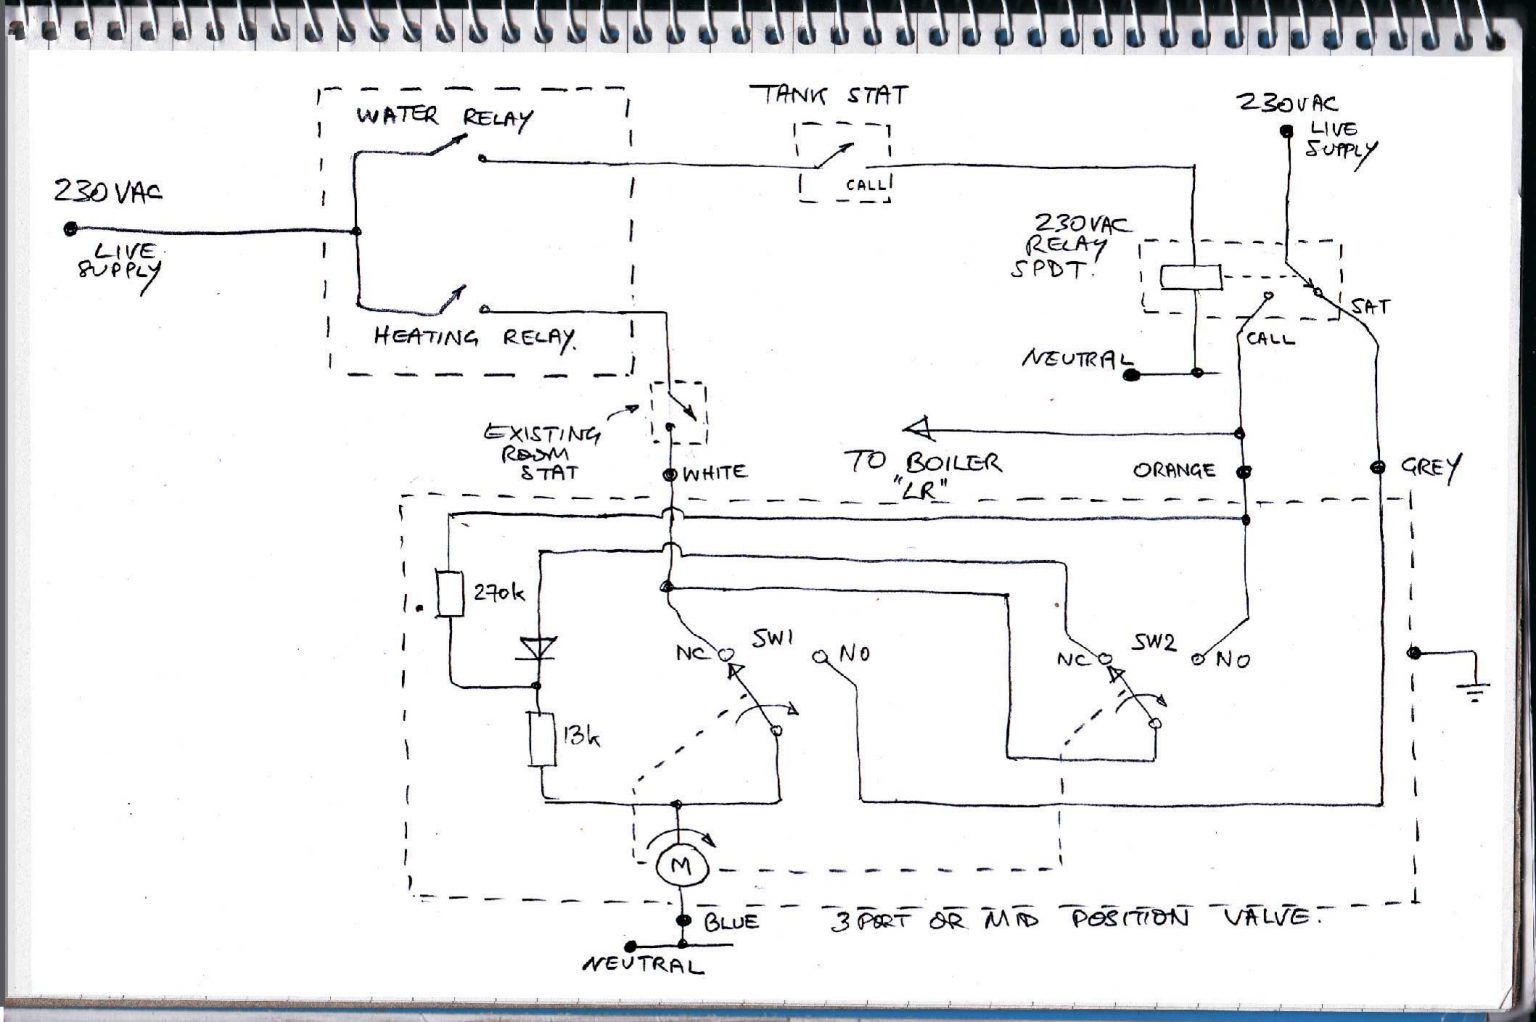 WATER RELAY
TANK STAT
CALL
230VAC
LIVE
SUPPLY
230 VAC
LIVE
SUPPLY
HEATING RELAY.
230VAC
RELAY
SPDT.
SAT
CALL
NEUTRAL
EXISTING
ROOM
STAT
WHITE
TO BOILER
"LR"
ORANGE
GREY
270k
13k
NC
SW1
NO
NC
SW2
NO
M
BLUE
3 PORT OR MID POSITION VALVE.
NEUTRAL